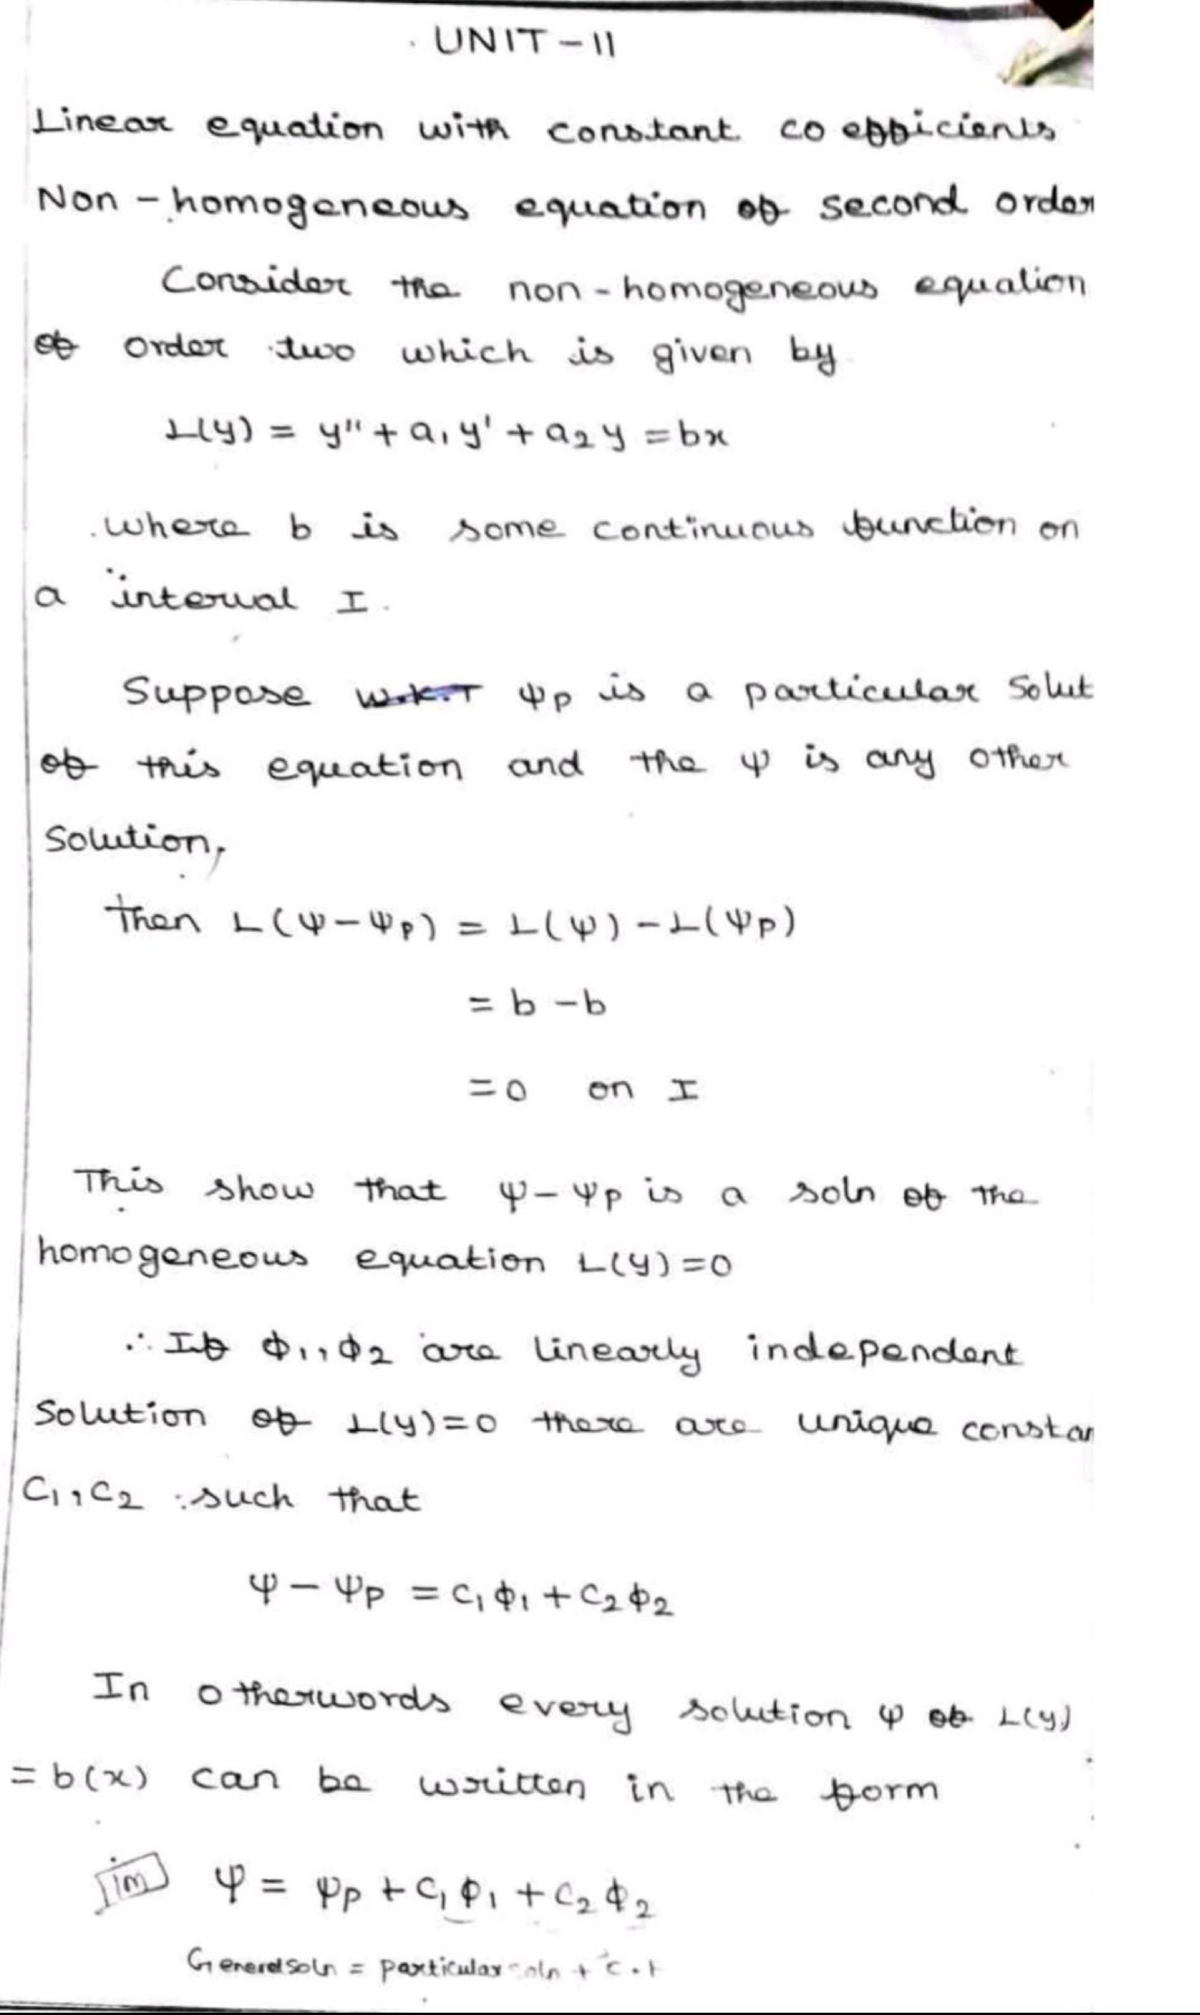 UNIT-II
Linear equation with constant co efficients
Non-homogeneous equation of second order
Consider the non-homogeneous equation
of order two which is given by
L(y) = y'' + a₁y' + a₂y = bx
where b is some continuous function on
a interval I.
Suppose ψp is a particular Solut
of this equation and the ψ is any other
Solution,
then L(ψ-ψp) = L(ψ) - L(ψp)
= b - b
= 0 on I
This show that ψ-ψp is a soln of the
homogeneous equation L(y)=0
∴ If ϕ₁, ϕ₂ are linearly independent
Solution of L(y)=0 there are unique constan
C₁, C₂ such that
ψ - ψp = C₁ϕ₁ + C₂ϕ₂
In otherwords every solution ψ of L(y)
= b(x) can be written in the form
im ψ = ψp + C₁ϕ₁ + C₂ϕ₂
General soln = particular soln + c.f